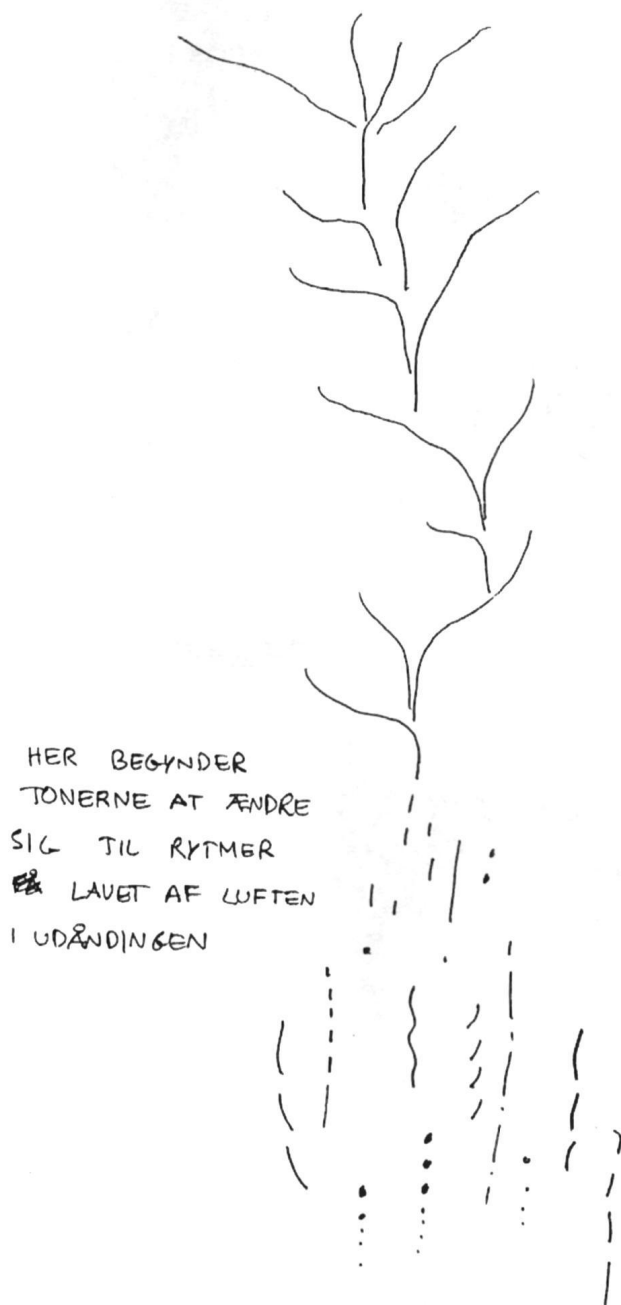 HER BEGYNDER
TONERNE AT ÆNDRE
SIG TIL RYTMER
LAVET AF LUFTEN
I UDÅNDINGEN